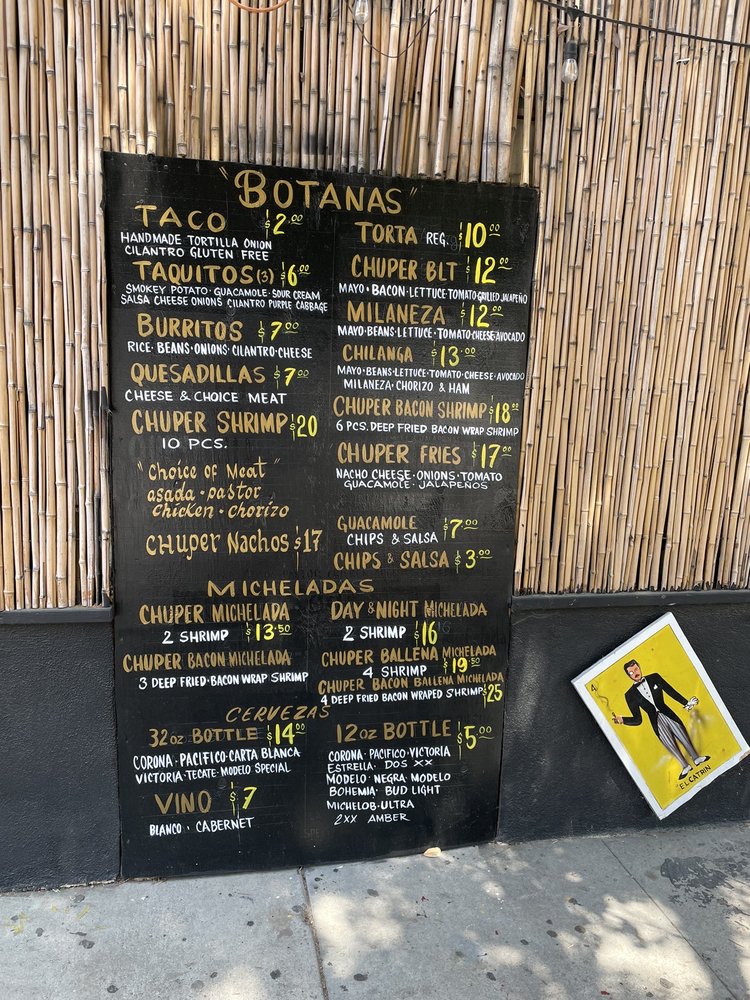 "BOTANAS"
TACO $2.00
HANDMADE TORTILLA ONION
CILANTRO GLUTEN FREE
TAQUITOS (3) $6.00
SMOKEY POTATO · GUACAMOLE · SOUR CREAM
SALSA CHEESE ONIONS CILANTRO PURPLE CABBAGE
BURRITOS $7.00
RICE · BEANS · ONIONS · CILANTRO · CHEESE
QUESADILLAS $7.00
CHEESE & CHOICE MEAT
CHUPER SHRIMP $20
10 PCS.
"Choice of Meat"
asada · pastor
chicken · chorizo
CHUPER NACHOS $17
TORTA REG. $10.00
CHUPER BLT $12.00
MAYO · BACON · LETTUCE · TOMATO GRILLED JALAPEÑO
MILANEZA $12.00
MAYO · BEANS · LETTUCE · TOMATO · CHEESE · AVOCADO
CHILANGA $13.00
MAYO · BEANS · LETTUCE · TOMATO · CHEESE · AVOCADO
MILANEZA · CHORIZO & HAM
CHUPER BACON SHRIMP $18.00
6 PCS. DEEP FRIED BACON WRAP SHRIMP
CHUPER FRIES $17.00
NACHO CHEESE · ONIONS · TOMATO
GUACAMOLE · JALAPEÑOS
GUACAMOLE $7.00
CHIPS & SALSA
CHIPS & SALSA $3.00
MICHELADAS
CHUPER MICHELADA
2 SHRIMP $13.50
CHUPER BACON MICHELADA
3 DEEP FRIED · BACON WRAP SHRIMP
DAY & NIGHT MICHELADA
2 SHRIMP $16
CHUPER BALLENA MICHELADA
4 SHRIMP $19.50
CHUPER BACON BALLENA MICHELADA
4 DEEP FRIED BACON WRAPED SHRIMP $25
CERVEZAS
32oz BOTTLE $14.00
CORONA · PACIFICO · CARTA BLANCA
VICTORIA · TECATE · MODELO SPECIAL
VINO $7
BLANCO · CABERNET
12oz BOTTLE $5.00
CORONA · PACIFICO · VICTORIA
ESTRELLA · DOS XX
MODELO · NEGRA MODELO
BOHEMIA · BUD LIGHT
MICHELOB · ULTRA
2XX AMBER
4
EL CATRIN